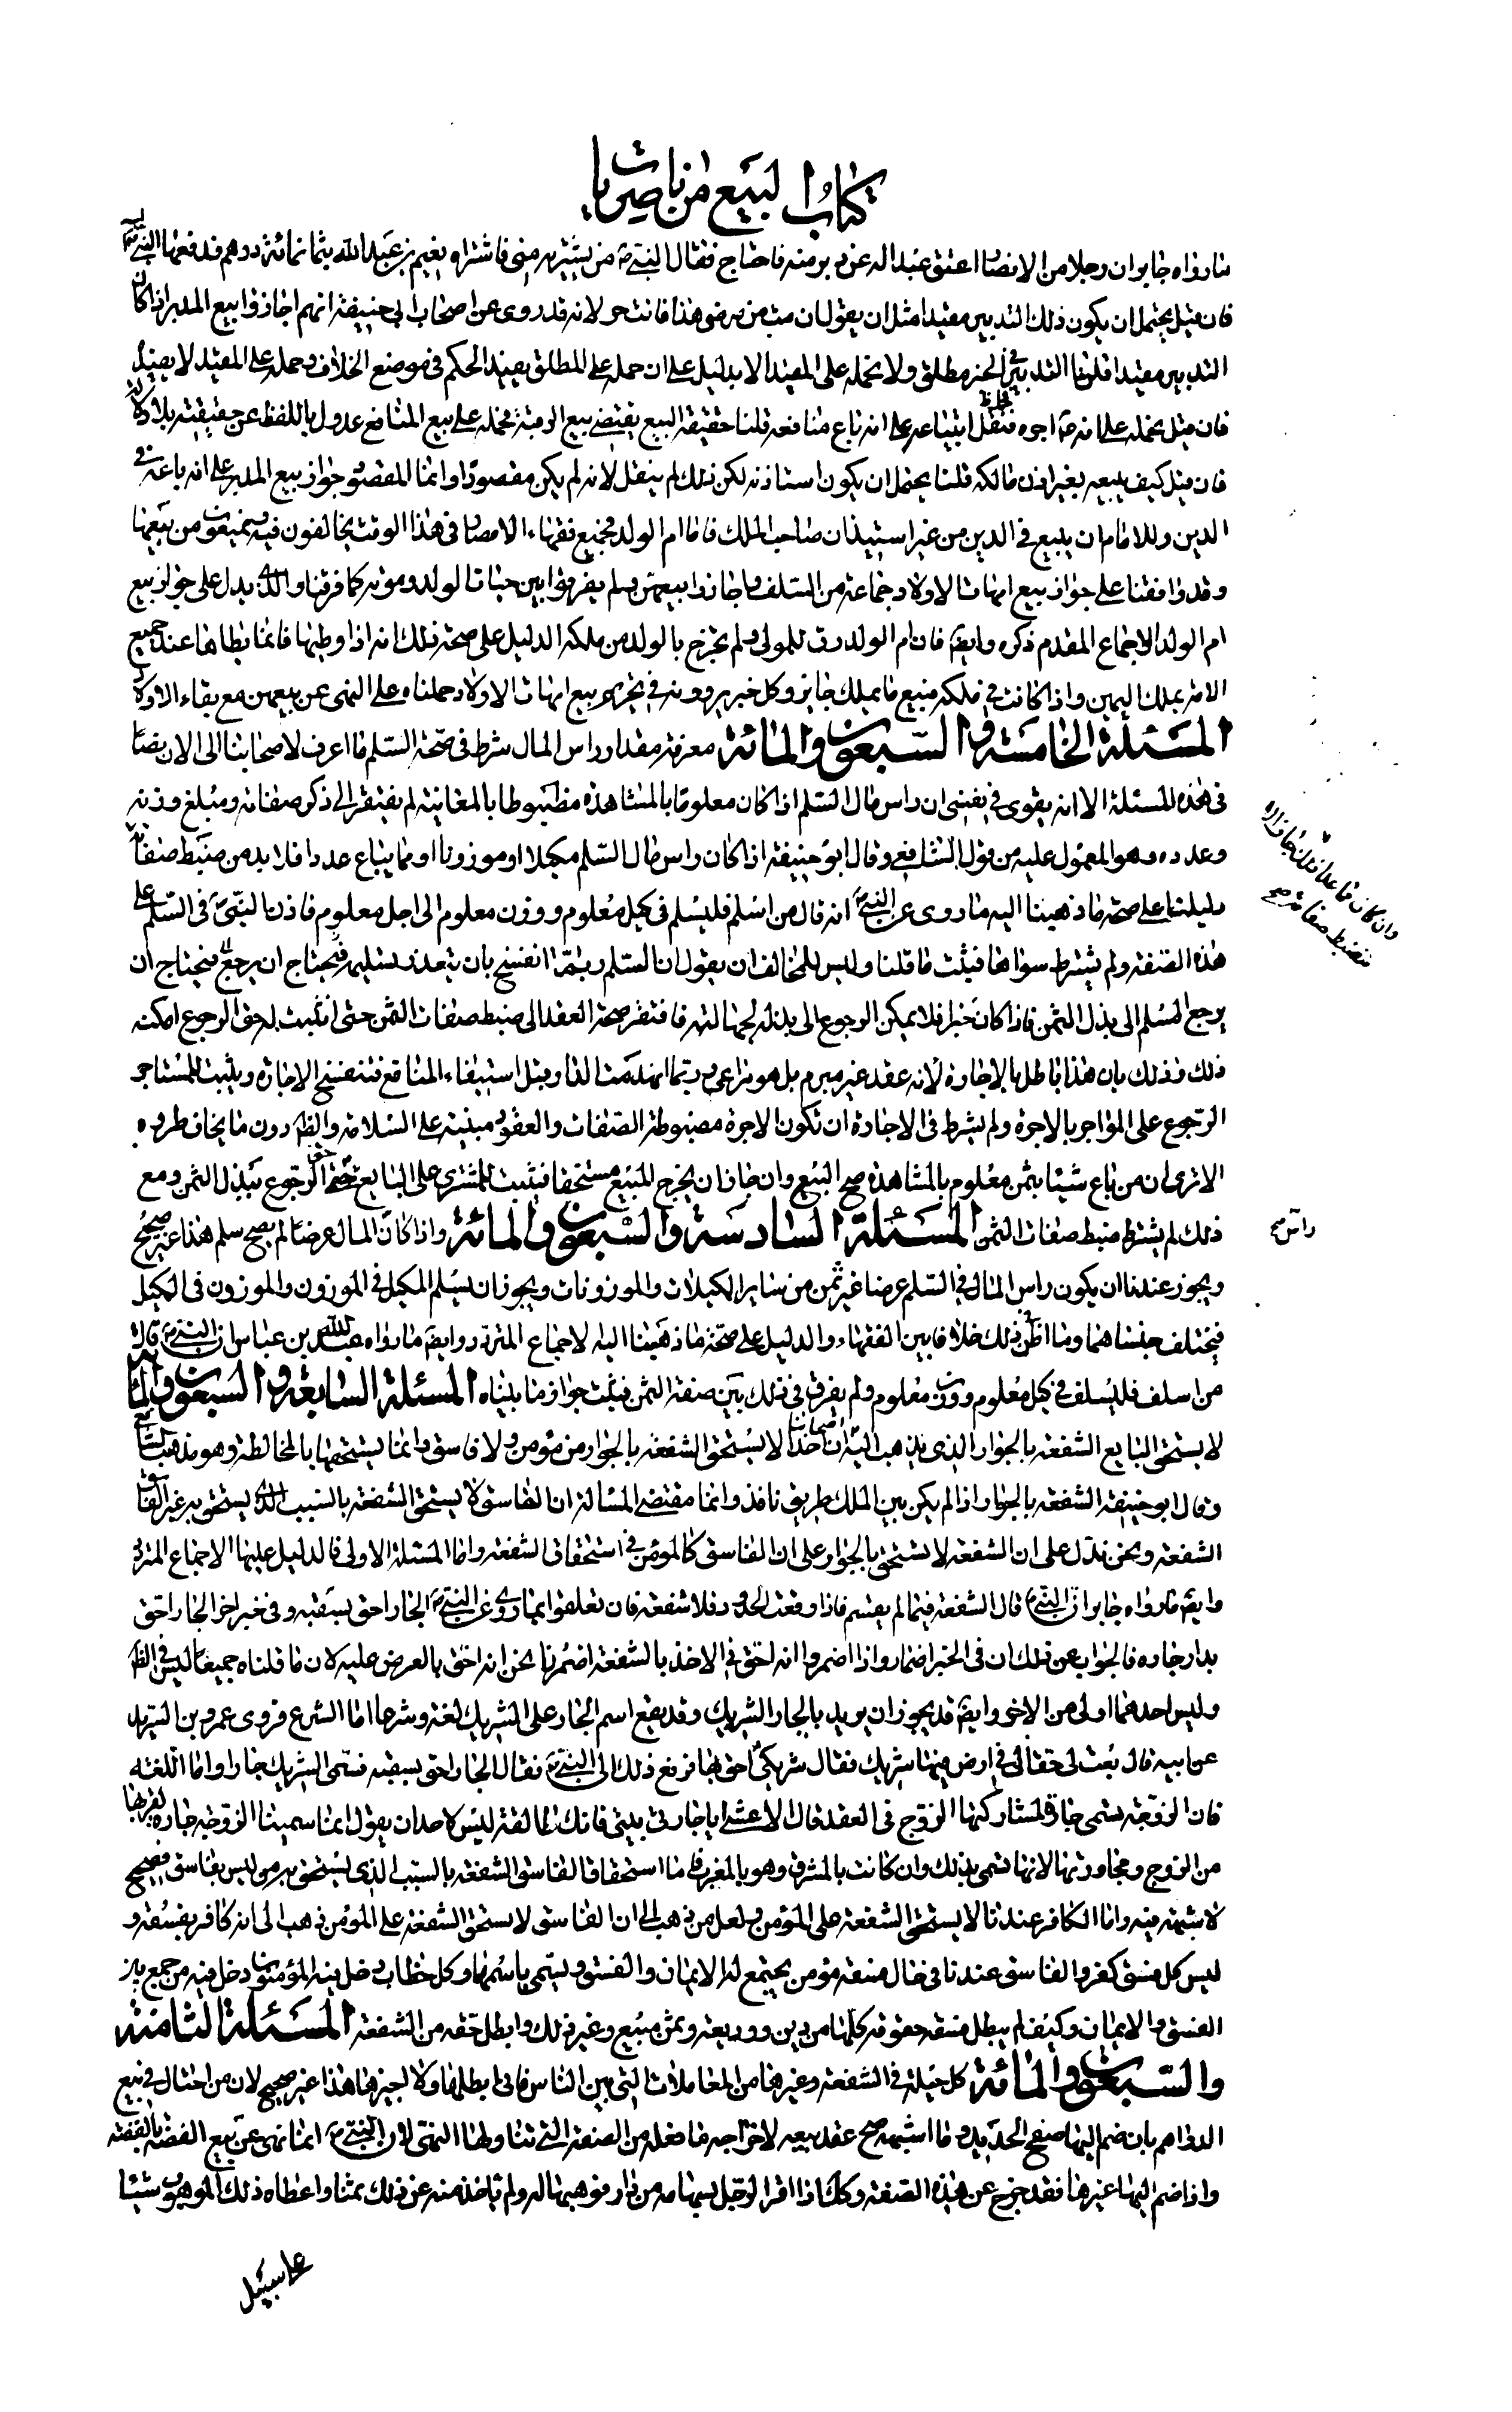 كتاب البيع من ناصريات
ما رواه جابر ان رجلا من الانصار اعتق عبدا له عن دبر منه فاحتاج فقال النبي ص من يشتريه مني فاشتراه نعيم بن عبد الله بثمانمائة درهم فدفعها اليه
فان قيل يحتمل ان يكون ذلك التدبير مقيدا مثل ان يقول ان مت من مرضي هذا فانت حر لانه قد روى عن اصحاب ابي حنيفة انهم اجازوا بيع المدبر اذا كان
التدبير مقيدا قلنا التدبير في الخبر مطلق ولا نحمله على المقيد الا بدليل على ان حمله على المطلق يفيد الحكم في موضع الخلاف وحمله على المقيد لا يفيد
فان قيل نحمله على انه ع اجره فنقل ابتياعه على انه باع منافعه قلنا حقيقة البيع يقتضي بيع الرقبة فحمله على بيع المنافع عدول باللفظ عن حقيقته بلا دلالة
فان قيل كيف يبيعه بغير اذن مالكه قلنا يحتمل ان يكون استاذنه لكن ذلك لم ينقل لانه لم يكن مقصودا وانما المقصود جواز بيع المدبر على انه باعه في
الدين وللامام ان يبيع في الدين من غير استيذان صاحب الملك فاما ام الولد فجميع فقهاء الامصار في هذا الوقت يخالفون فيه ويمنعون من بيعها
وقد وافقنا على جواز بيع امهات الاولاد جماعة من السلف واجازوا بيعهن ولم يفرقوا بين حيات الولد وموته كما فرقنا والذي يدل على جواز بيع
ام الولد الاجماع المقدم ذكره وايضا فان ام الولد رق للمولى ولم تخرج بالولد من ملكه الدليل على صحة ذلك انه اذا وطيها فانما يطاها عند جميع
الامة بملك اليمين واذا كانت في ملكه فبيع ما يملك جايز وكل خبر يروونه في تحريم بيع امهات الاولاد حملناه على النهي عن بيعهن مع بقاء الاولاد
المسئلة الخامسة والسبعون والمائة معرفة مقدار راس المال شرط في صحة السلم ما اعرف لاصحابنا الى الان نصا
في هذه المسئلة الا انه يقوى في نفسي ان راس مال السلم اذا كان معلوما بالمشاهدة مضبوطا بالمعاينة لم يفتقر الى ذكر صفاته ومبلغ وزنه
وعدده وهو المعمول عليه من قول الشافعي وقال ابو حنيفة اذا كان راس مال السلم مكيلا او موزونا او مما يباع عددا فلا بد من ضبط صفاته
دليلنا على صحة ما ذهبنا اليه ما روى عن النبي ص انه قال من اسلم فليسلم في كيل معلوم ووزن معلوم الى اجل معلوم فاذن النبي ص في السلم على
هذه الصفة ولم يشترط سواها فيثبت ما قلنا وليس للمخالف ان يقول ان السلم ربما انفسخ بان يتعذر تسليمه فيحتاج ان يرجع فيحتاج ان
يرجع المسلم الى بذل الثمن فاذا كان خبرا فلا يمكن الرجوع الى بذله لجهالته فافتقر صحة العقد الى ضبط صفات الثمن حتى اذا ثبت له حق الرجوع امكنه
ذلك وذلك بان هذا باطل بالاجارة لانه عقد غير مبرم بل هو مراعى وربما انهدمت الدار قبل استيفاء المنافع فتنفسخ الاجارة ويثبت للمستاجر
الرجوع على المواجر بالاجرة ولم يشرط في الاجارة ان تكون الاجرة مضبوطة الصفات والعقود مبنية على السلامة والظاهر دون ما يخاف طروه
الا ترى ان من باع شيئا بثمن معلوم بالمشاهدة صح البيع وان جاز ان يخرج المبيع مستحقا فيثبت للمشتري على البايع حق الرجوع ببذل الثمن ومع
ذلك لم يشترط ضبط صفات الثمن المسئلة السادسة والسبعون والمائة واذا كان المال عرضا لم يصح سلم هذا غير صحيح
ويجوز عندنا ان يكون راس المال في السلم عرضا غير ثمن من ساير المكيلات والموزونات ويجوز ان يسلم المكيل في الموزون والموزون في المكيل
فيختلف جنساهما وما اظن في ذلك خلافا بين الفقهاء والدليل على صحة ما ذهبنا اليه الاجماع المتردد وايضا ما رواه عبد الله بن عباس ان النبي ص قال
من اسلف فليسلف في كيل معلوم ووزن معلوم ولم يفرق في ذلك بين صفة الثمن فيثبت جواز ما بيناه المسئلة السابعة والسبعون والمائة
لا يستحق البايع الشفعة بالجوار الذي يذهب اليه اصحابنا ان احدا لا يستحق الشفعة بالجوار من مؤمن ولا فاسق وانما يستحقها بالمخالطة وهو مذهب الشافعي
وقال ابو حنيفة الشفعة بالجوار اذا لم يكن بين الملك طريق نافذ وانما مقتضى المسالة ان الفاسق لا يستحق الشفعة بالسبب الذي يستحق به غير الفاسق
الشفعة ونحن ندل على ان الشفعة لا تستحق بالجوار وعلى ان الفاسق كالمؤمن في استحقاق الشفعة واما المسئلة الاولى فالدليل عليها الاجماع المتردد
وايضا ما رواه جابر ان النبي ص قال الشفعة فيما لم يقسم فاذا وقعت الحدود فلا شفعة فان تعلقوا بما روى عن النبي ص الجار احق بسقبه وفي خبر اخر الجار احق
بدار جاره فالجواب عن ذلك ان في الخبر اضمار واذا اضمروا انه احق في الاخذ بالشفعة اضمرنا نحن انه احق بالعرض عليه لان ما قلناه جميعا ليس في الظاهر
وليس احدهما اولى من الاخر وايضا قد يجوز ان يريد بالجار الشريك وقد يقع اسم الجار على الشريك لغة وشرعا اما الشرع فروى عمرو بن الشريد
عن ابيه قال بعت لي حقا لي في ارض فيها شريك فقال شريكي احق بها فرفع ذلك الى النبي ص فقال الجار احق بسقبه فسمى الشريك جارا واما اللغة
فان الزوجة تسمى جارة لمشاركتها الزوج في العقد قال الاعشى ايا جارتي بيني فانك طالقة ليس لاحد ان يقول انما سمينا الزوجة جارة لقربها
من الزوج ومجاورتها لانها تسمى بذلك وان كانت بالمشرق وهو بالمغرب فاما استحقاق الفاسق الشفعة بالسبب الذي يستحق به من ليس بفاسق فصحيح
لا شبهة فيه واما الكافر عندنا لا يستحق الشفعة على المؤمن ولعل من ذهب الى ان الفاسق لا يستحق الشفعة على المؤمن ذهب الى انه كافر بفسقه و
ليس كل فسق كفر والفاسق عندنا في حال فسقه مؤمن يجتمع له الايمان والفسق ويسمى باسمهما وكل خطاب دخل فيه المؤمنون دخل فيه من جمع بين
الفسق والايمان وكيف لم يبطل فسقه حقوقه كلها من دين ووديعة وثمن مبيع وغير ذلك وابطل حقه من الشفعة المسئلة الثامنة
والسبعون والمائة كل حيلة في الشفعة وغيرها من المعاملات التي بين الناس فاني ابطلها ولا اجيزها هذا غير صحيح لان من احتال في بيع
الدراهم بان ضم اليها صفح الحديد وما اشبهه صح عقد بيعه لاخراجه ما فعله من الصفة التي تناولها النهي لان النبي ص انما نهى عن بيع الفضة بالفضة
واذا ضم اليها غيرها فقد خرج عن هذه الصفة وكذلك اذا اقر الرجل بسهامه من دار فوهبها له ولم ياخذ منه عن ذلك ثمنا واعطاه ذلك الموهوب شيئا